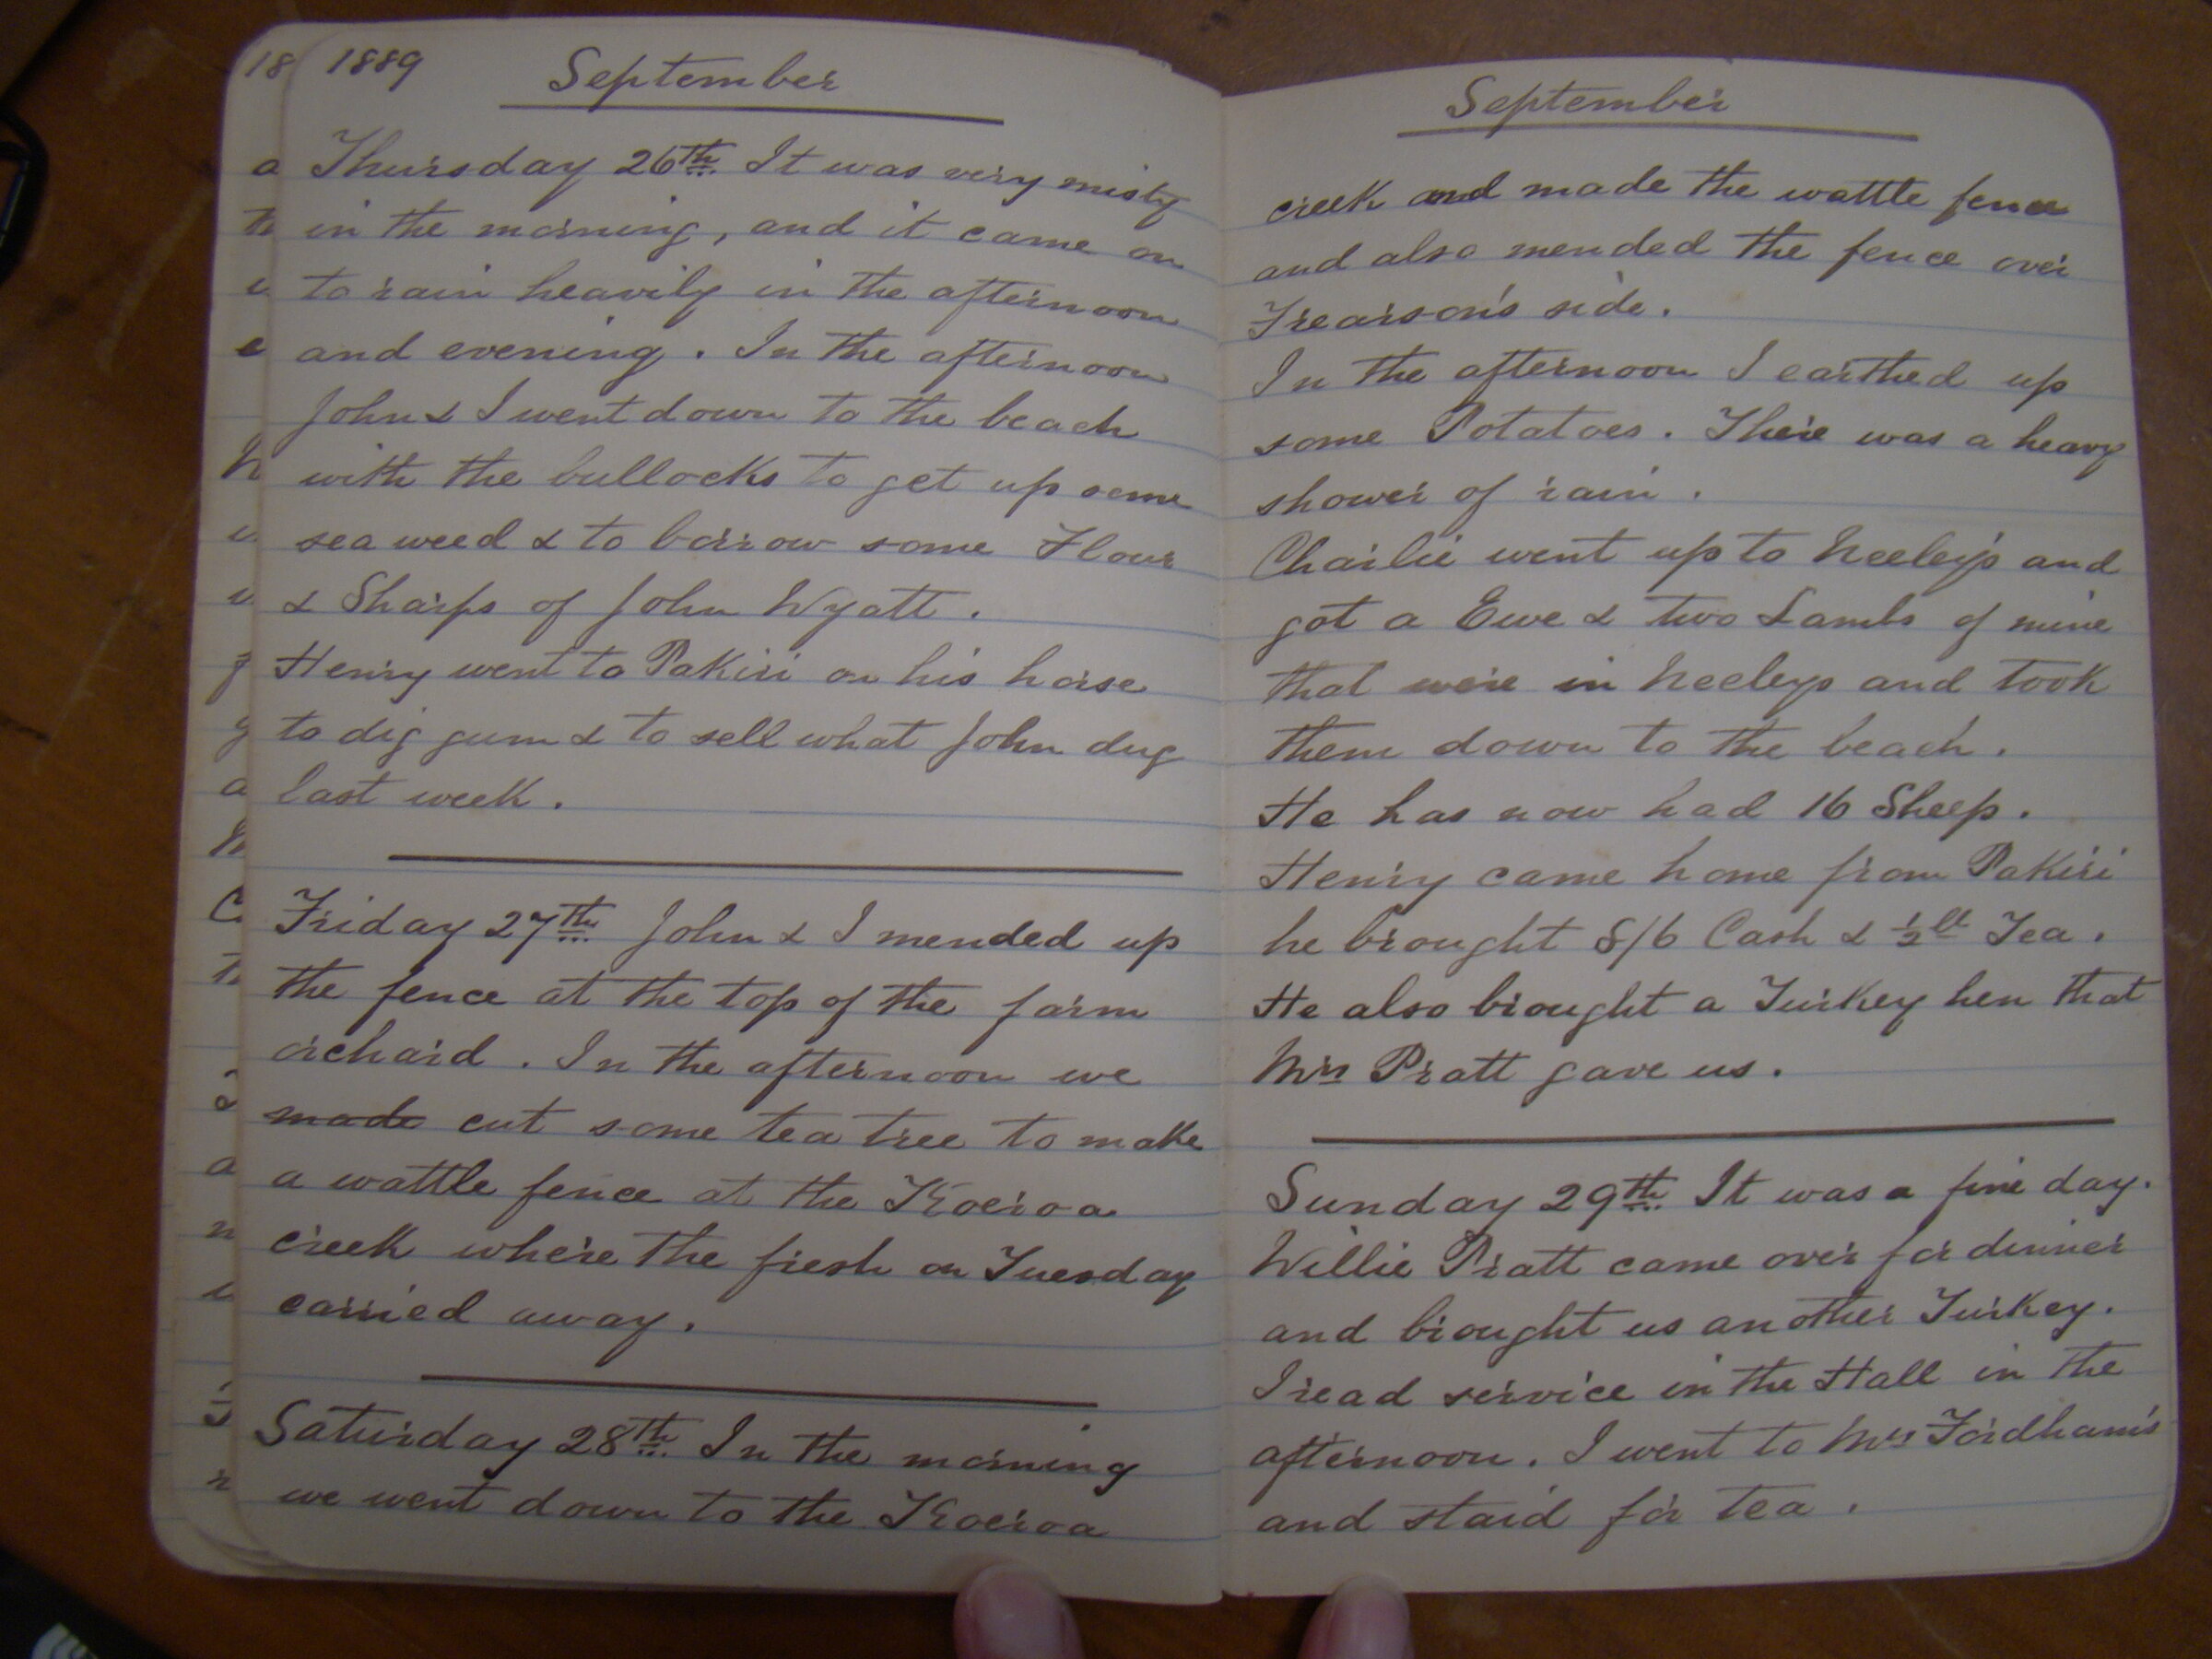 1889
September
Thursday 26th. It was very misty
in the morning, and it came on
to rain heavily in the afternoon
and evening. In the afternoon
John & I went down to the beach
with the bullocks to get up some
sea weed & to borrow some Flour
& Sharps of John Wyatt.
Henry went to Pakiri on his horse
to dig gum & to sell what John dug
last week.
Friday 27th. John & I mended up
the fence at the top of the farm
orchard. In the afternoon we
made cut some tea tree to make
a wattle fence at the Koeroa
creek where the fresh on Tuesday
carried away.
Saturday 28th. In the morning
we went down to the Koeroa
September
creek and made the wattle fence
and also mended the fence over
Frearson's side.
In the afternoon I earthed up
some Potatoes. There was a heavy
shower of rain.
Charlie went up to Neeley's and
got a Ewe & two Lambs of mine
that were in Neeleys and took
them down to the beach.
He has now had 16 Sheep.
Henry came home from Pakiri
he brought 8/6 Cash & ½ lb Tea.
He also brought a Turkey hen that
Mrs Pratt gave us.
Sunday 29th. It was a fine day.
Willie Pratt came over for dinner
and brought us another Turkey.
I read service in the Hall in the
afternoon. I went to Mrs Fordham's
and staid for tea.